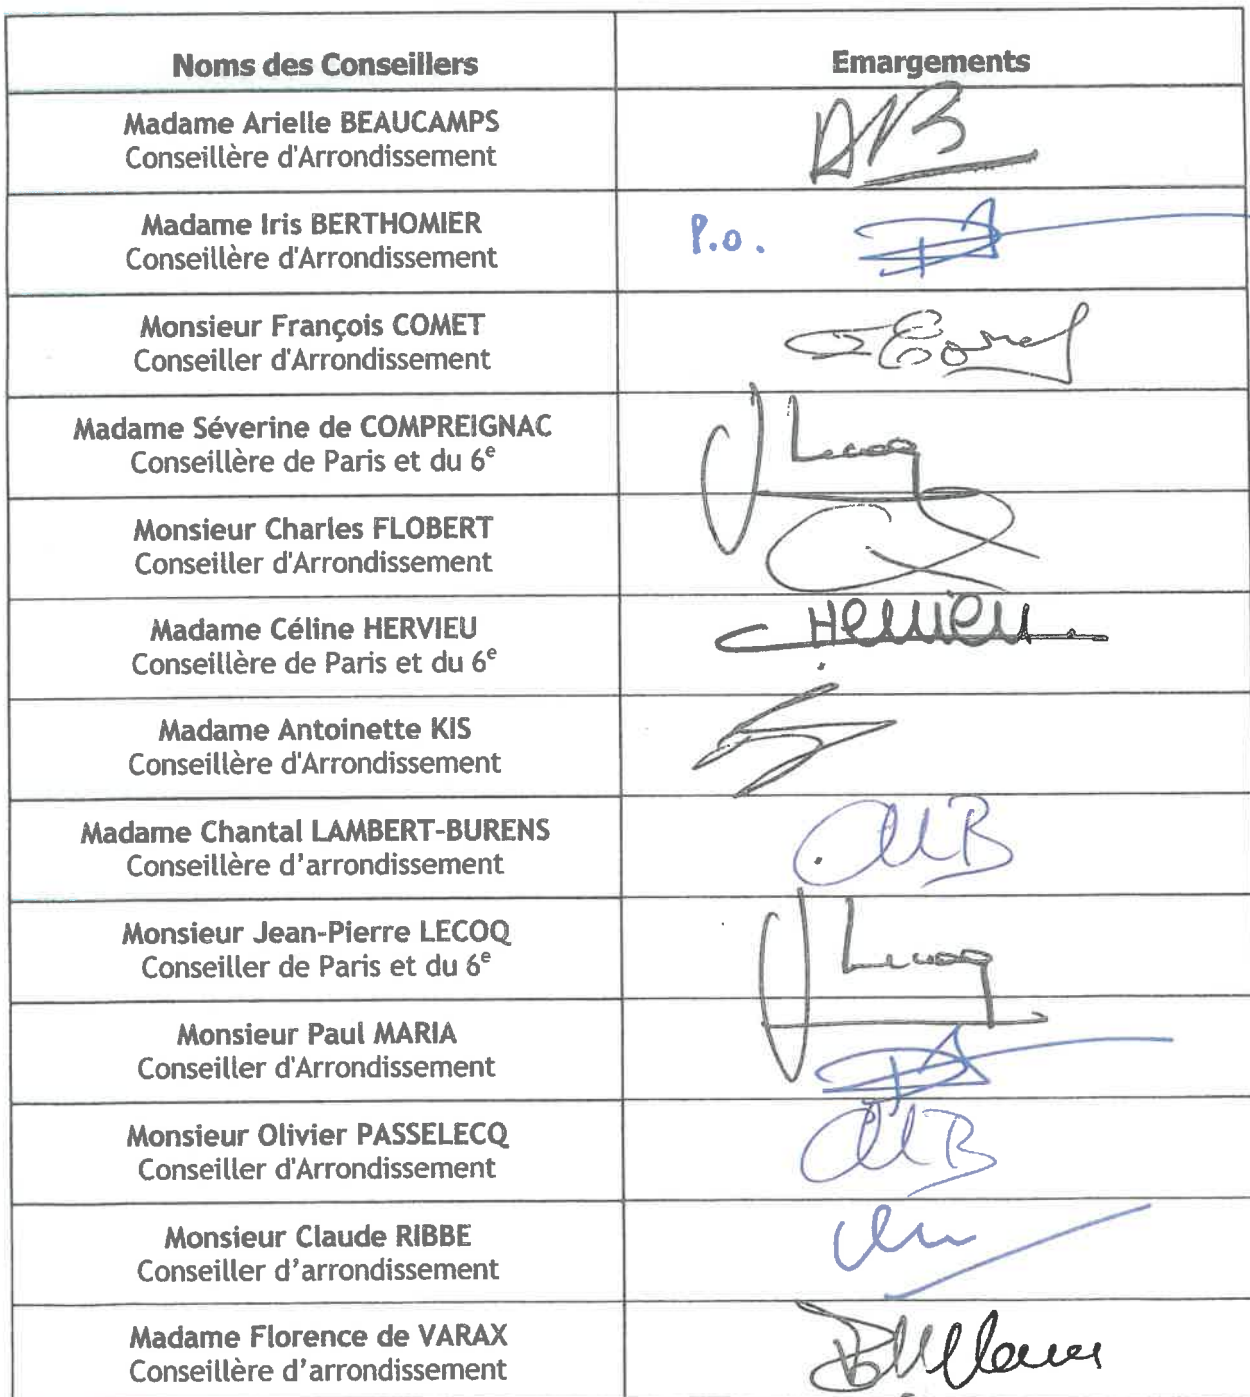 Noms des Conseillers
Emargements
Madame Arielle BEAUCAMPS
Conseillère d'Arrondissement
AB
Madame Iris BERTHOMIER
Conseillère d'Arrondissement
P.o.
Monsieur François COMET
Conseiller d'Arrondissement
Madame Séverine de COMPREIGNAC
Conseillère de Paris et du 6e
J Lecoq
Monsieur Charles FLOBERT
Conseiller d'Arrondissement
Madame Céline HERVIEU
Conseillère de Paris et du 6e
C Hervieu
Madame Antoinette KIS
Conseillère d'Arrondissement
Madame Chantal LAMBERT-BURENS
Conseillère d’arrondissement
Monsieur Jean-Pierre LECOQ
Conseiller de Paris et du 6e
J Lecoq
Monsieur Paul MARIA
Conseiller d'Arrondissement
Monsieur Olivier PASSELECQ
Conseiller d'Arrondissement
Monsieur Claude RIBBE
Conseiller d’arrondissement
Madame Florence de VARAX
Conseillère d’arrondissement